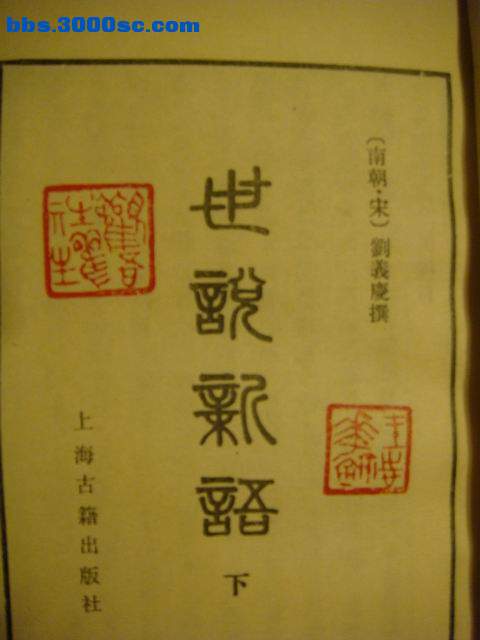 bbs.3000sc.com
〔南朝·宋〕劉義慶撰
世說新語
下
上海古籍出版社